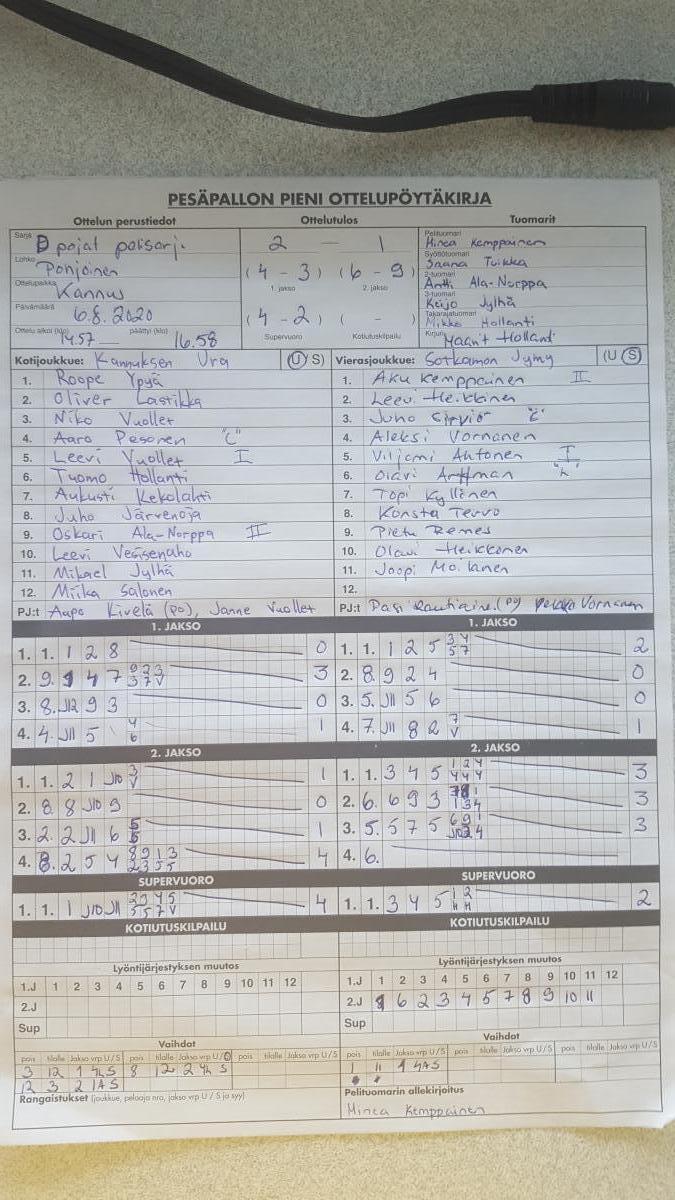 PESÄPALLON PIENI OTTELUPÖYTÄKIRJA
Ottelun perustiedot Ottelutulos Tuomarit
Sarja D pojat
Lohko Pohjoinen
Ottelupaikka Kannus
Päivämäärä 6.8.2020
Ottelu alkoi (klo) 14.57 päättyi (klo) 16.58
2 — 1
(4 - 3) (6 - 9)
1. jakso 2. jakso
(4 - 2) ( - )
Supervuoro Kotiutuskilpailu
Pelituomari Minea Kemppainen
Syöttötuomari Saana Tuikka
2-tuomari Antti Ala-Norppa
3-tuomari Keijo Jylhä
Takarajatuomari Mikko Hollanti
Kirjuri Hollanti
Kotijoukkue: Kannuksen Ura (U S)
1. Roope Ypyä
2. Oliver Lastikka
3. Niko Vuollet
4. Aaro Pesonen "C"
5. Leevi Vuollet I
6. Tuomo Hollanti
7. Aukusti Kekolahti
8. Juho Järvenoja
9. Oskari Ala-Norppa II
10. Leevi Vesisenaho
11. Mikael Jylhä
12. Miika Salonen
PJ:t Aapo Kivelä (po), Janne Vuollet
Vierasjoukkue: Sotkamon Jymy (U S)
1. Aku Kemppainen II
2. Leevi Heikkinen
3. Juho Sirviö "C"
4. Aleksi Vornanen
5. Viljami Ahtonen I
6. Olavi
7. Topi Kyllönen
8. Konsta Tervo
9. Pietu Remes
10. Olavi Heikkonen
11. Joopi Moilanen
12.
PJ:t Pasi Rautiainen (po) Vornanen
1. JAKSO
1. 1. 1 2 8 0
2. 9. 1 4 7 3
3. 8. J12 9 3 0
4. 4. J11 5 1
1. JAKSO
1. 1. 1 2 5 2
2. 8. 9 2 4 0
3. 5. J11 5 6 0
4. 7. J11 8 2 1
2. JAKSO
1. 1. 2 1 J10 1
2. 8. 8 J10 9 0
3. 2. 2 J11 6 1
4. 8. 2 5 4 4
2. JAKSO
1. 1. 3 4 5 3
2. 6. 6 9 3 3
3. 5. 5 7 5 3
4. 6.
SUPERVUORO
1. 1. 1 J10 J11 4
SUPERVUORO
1. 1. 3 4 5 2
KOTIUTUSKILPAILU
KOTIUTUSKILPAILU
Lyöntijärjestyksen muutos
1.J 1 2 3 4 5 6 7 8 9 10 11 12
2.J
Sup
Lyöntijärjestyksen muutos
1.J 1 2 3 4 5 6 7 8 9 10 11 12
2.J 1 6 2 3 4 5 7 8 9 10 11
Sup
Vaihdot
pois tilalle Jakso vrp U/S pois tilalle Jakso vrp U/S pois tilalle Jakso vrp U/S
3 12 1 4L S 8 12 2 4L S
12 3 2 1A S
Rangaistukset (joukkue, pelaaja nro, jakso vrp U / S ja syy)
Vaihdot
pois tilalle Jakso vrp U/S pois tilalle Jakso vrp U/S pois tilalle Jakso vrp U/S
1 11 1 4A S
Pelituomarin allekirjoitus
Minea Kemppainen